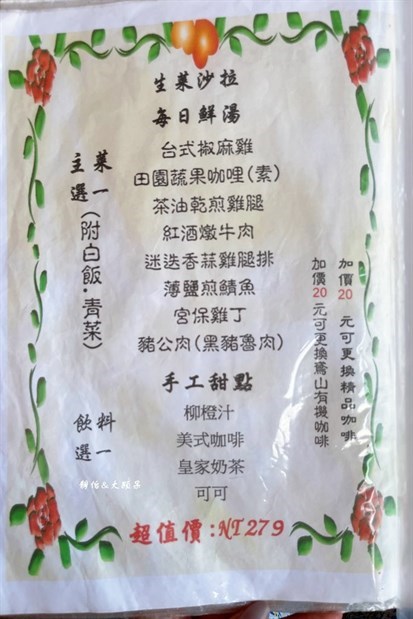 生菜沙拉
每日鮮湯
主菜
選一
(附白飯·青菜)
台式椒麻雞
田園蔬果咖哩(素)
茶油乾煎雞腿
紅酒燉牛肉
迷迭香蒜雞腿排
薄鹽煎鯖魚
宮保雞丁
豬公肉(黑豬魯肉)
手工甜點
飲料
選一
柳橙汁
美式咖啡
皇家奶茶
可可
加價20元可更換精品咖啡
加價20元可更換鳶山有機咖啡
超值價:NT279